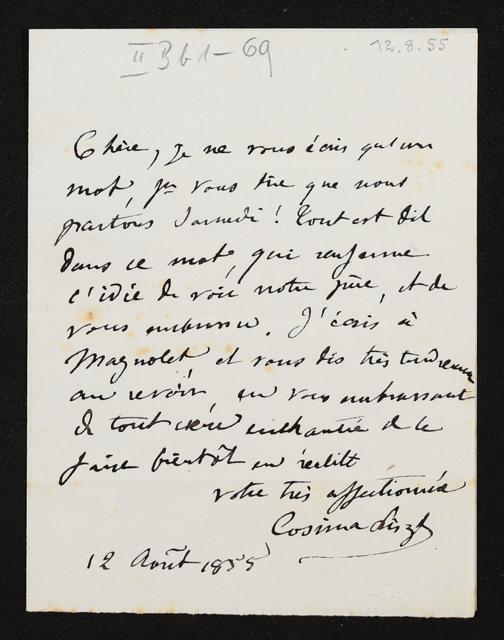 II Bb 1-69
12.8.55
Chère, je ne vous écris qu'un
mot, pr vous dire que nous
partons Samedi! Tout est dit
dans ce mot, qui renferme
l'idée de voir notre père, et de
vous embrasser. J'écris à
Magnolet et vous dis très tendrement
au revoir, en vous embrassant
de tout cœur enchantée de le
faire bientôt en réalité
votre très affectionnée
Cosima Liszt
12 Août 1855